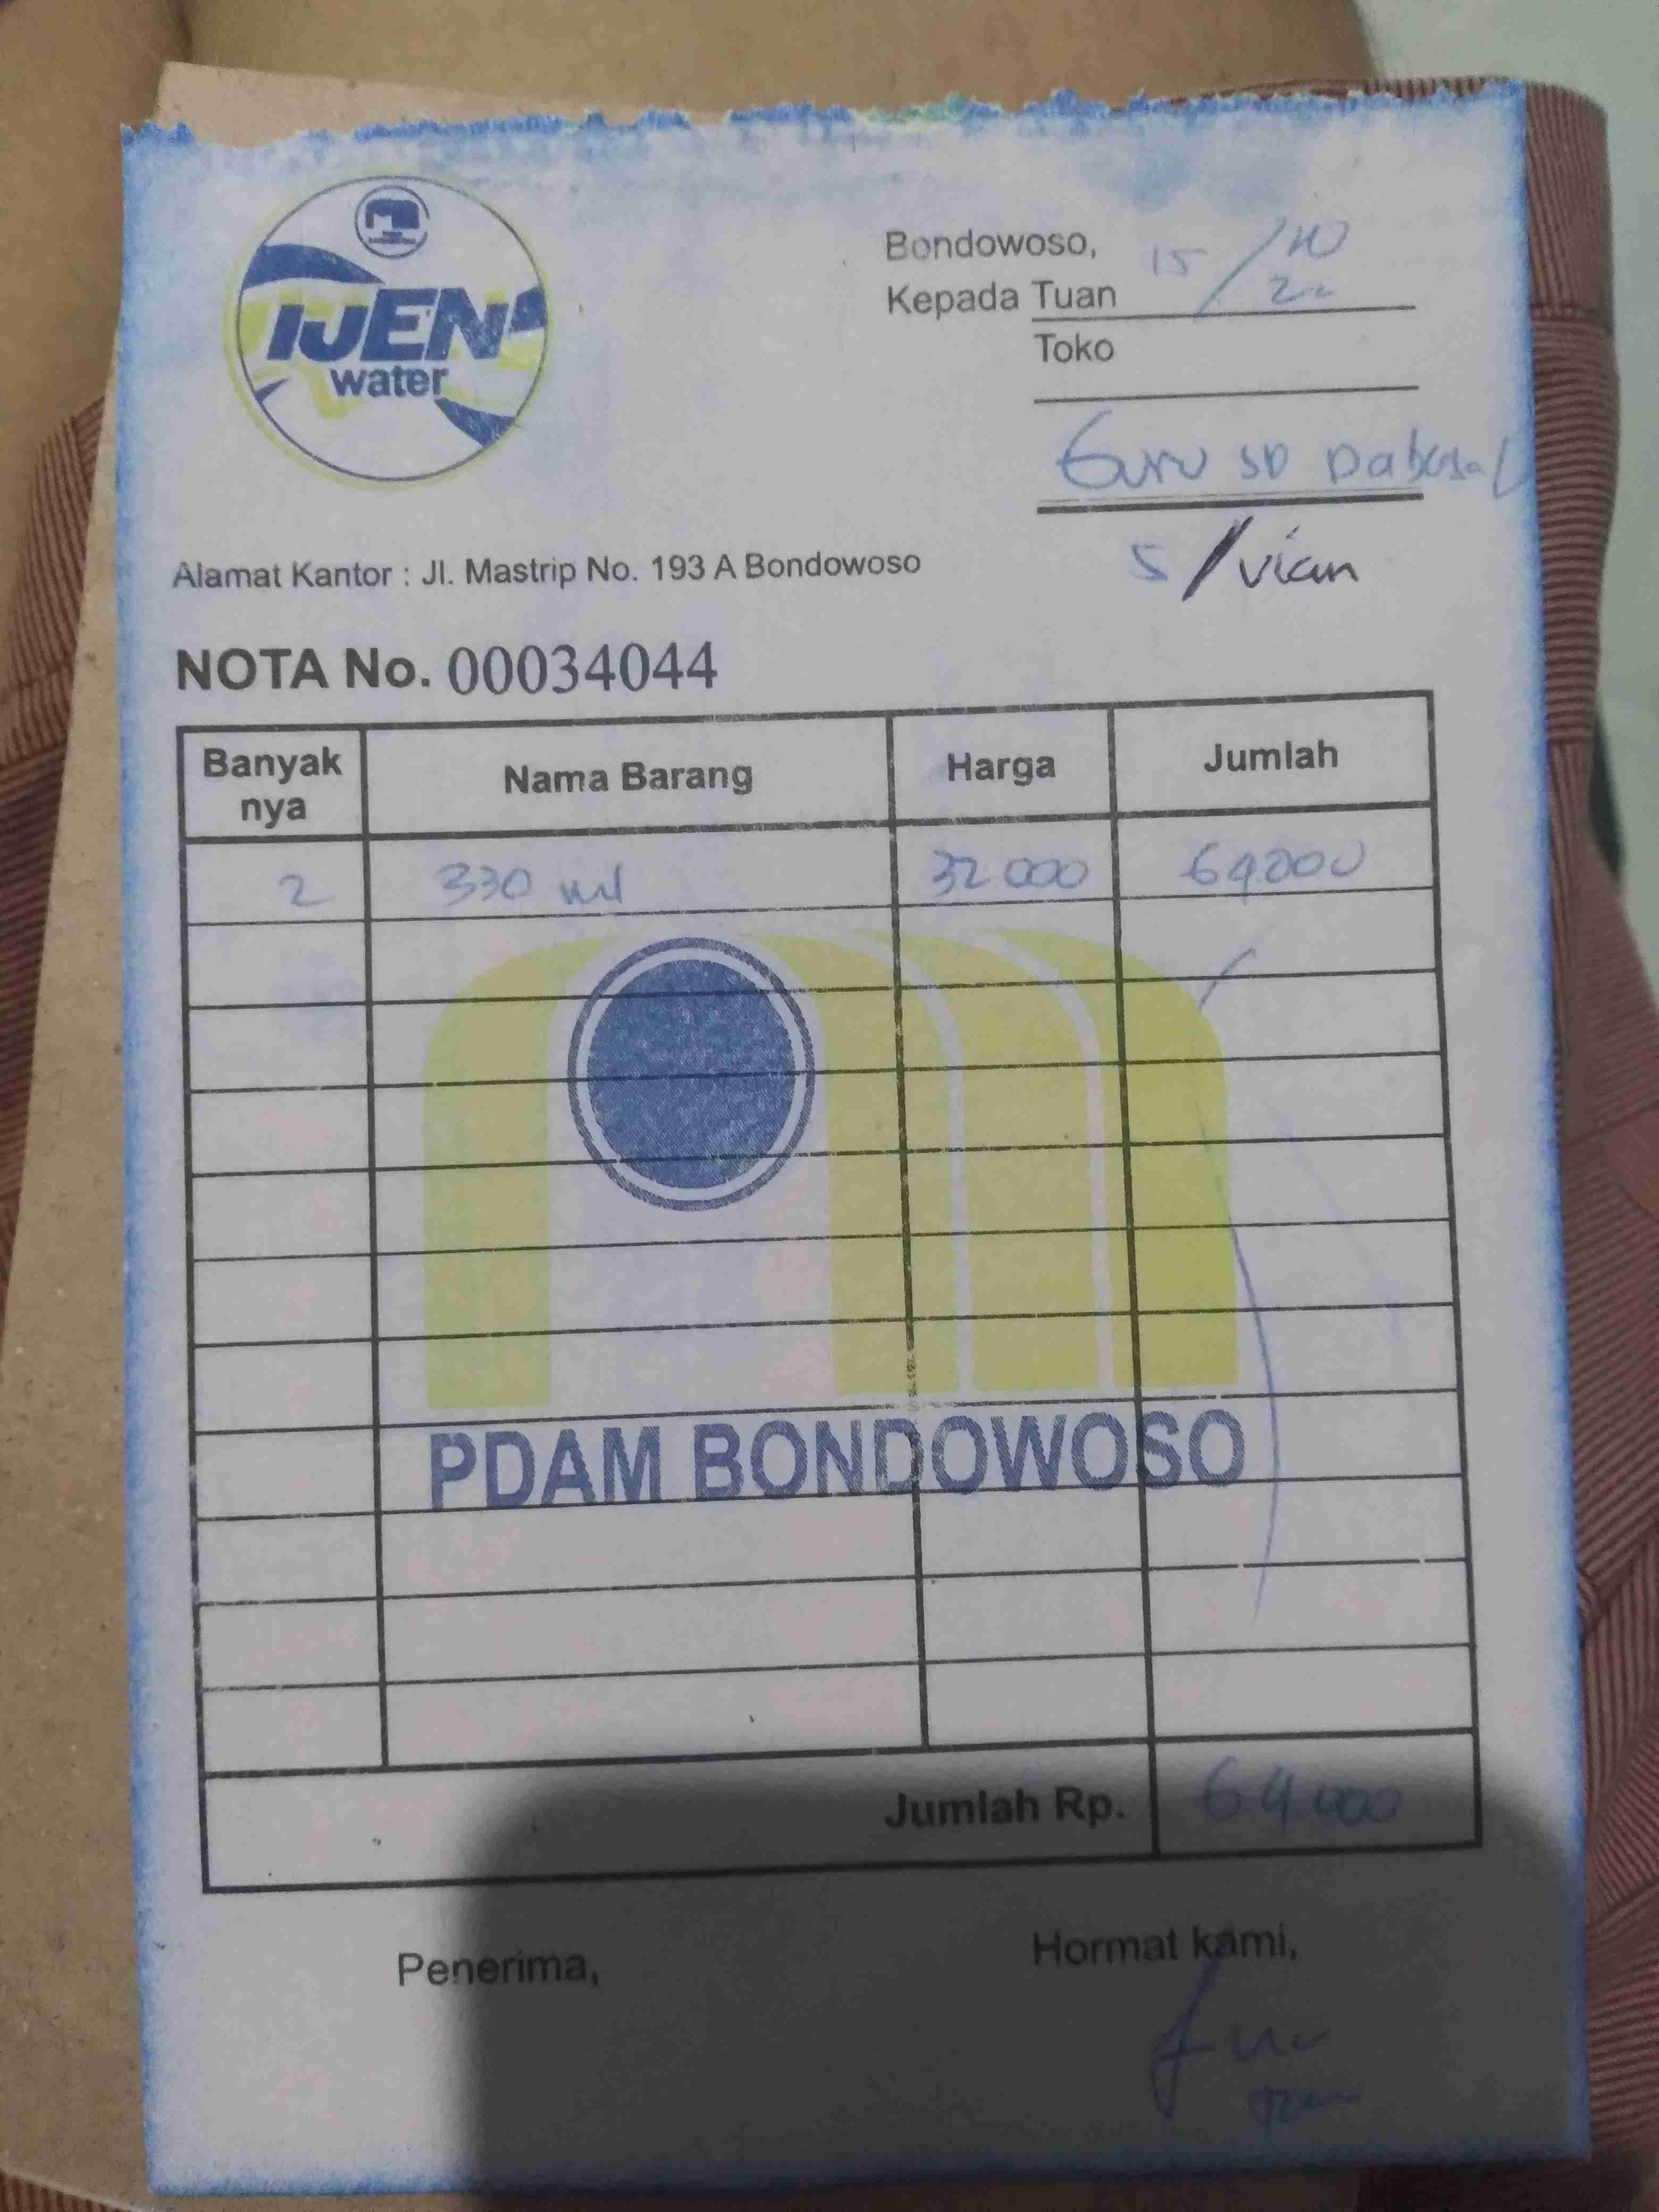 IJEN
water
Bondowoso, 15/10
Kepada Tuan 22
Toko
Guru SD Dabasal
S/vian
Alamat Kantor : Jl. Mastrip No. 193 A Bondowoso
NOTA No. 00034044
Banyak nya Nama Barang Harga Jumlah
2 330 ml 32.000 64.000
PDAM BONDOWOSO
Jumlah Rp. 64.000
Penerima, Hormat kami,